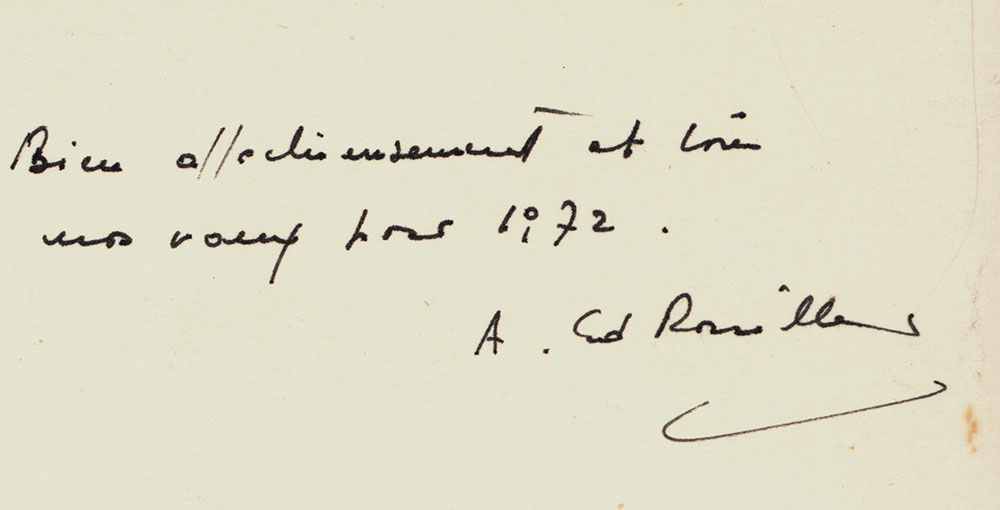 Bien affectueusement et tous
nos voeux pour 1972.
A. Ed Rouillers